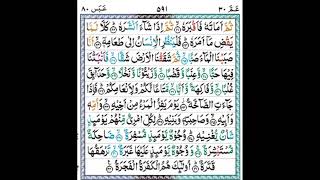 عَمَّ ٣٠ ٥٩١ عَبَسَ ٨٠
ثُمَّ اَمَاتَهٗ فَاَقْبَرَهٗ ۝ ثُمَّ اِذَا شَآءَ اَنْشَرَهٗ ۝ كَلَّا لَمَّا
يَقْضِ مَآ اَمَرَهٗ ۝ فَلْيَنْظُرِ الْاِنْسَانُ اِلٰى طَعَامِهٖٓ ۝ اَنَّا
صَبَبْنَا الْمَآءَ صَبًّا ۝ ثُمَّ شَقَقْنَا الْاَرْضَ شَقًّا ۝ فَاَنْۢبَتْنَا
فِيْهَا حَبًّا ۝ وَّعِنَبًا وَّقَضْبًا ۝ وَّزَيْتُوْنًا وَّنَخْلًا ۝ وَّحَدَآئِقَ
غُلْبًا ۝ وَّفَاكِهَةً وَّاَبًّا ۝ مَّتَاعًا لَّكُمْ وَلِاَنْعَامِكُمْ ۝ فَاِذَا
جَآءَتِ الصَّآخَّةُ ۝ يَوْمَ يَفِرُّ الْمَرْءُ مِنْ اَخِيْهِ ۝ وَاُمِّهٖ
وَاَبِيْهِ ۝ وَصَاحِبَتِهٖ وَبَنِيْهِ ۝ لِكُلِّ امْرِئٍ مِّنْهُمْ يَوْمَئِذٍ
شَاْنٌ يُّغْنِيْهِ ۝ وُجُوْهٌ يَّوْمَئِذٍ مُّسْفِرَةٌ ۝ ضَاحِكَةٌ
مُّسْتَبْشِرَةٌ ۝ وَوُجُوْهٌ يَّوْمَئِذٍ عَلَيْهَا غَبَرَةٌ ۝ تَرْهَقُهَا
قَتَرَةٌ ۝ اُولٰٓئِكَ هُمُ الْكَفَرَةُ الْفَجَرَةُ ۝